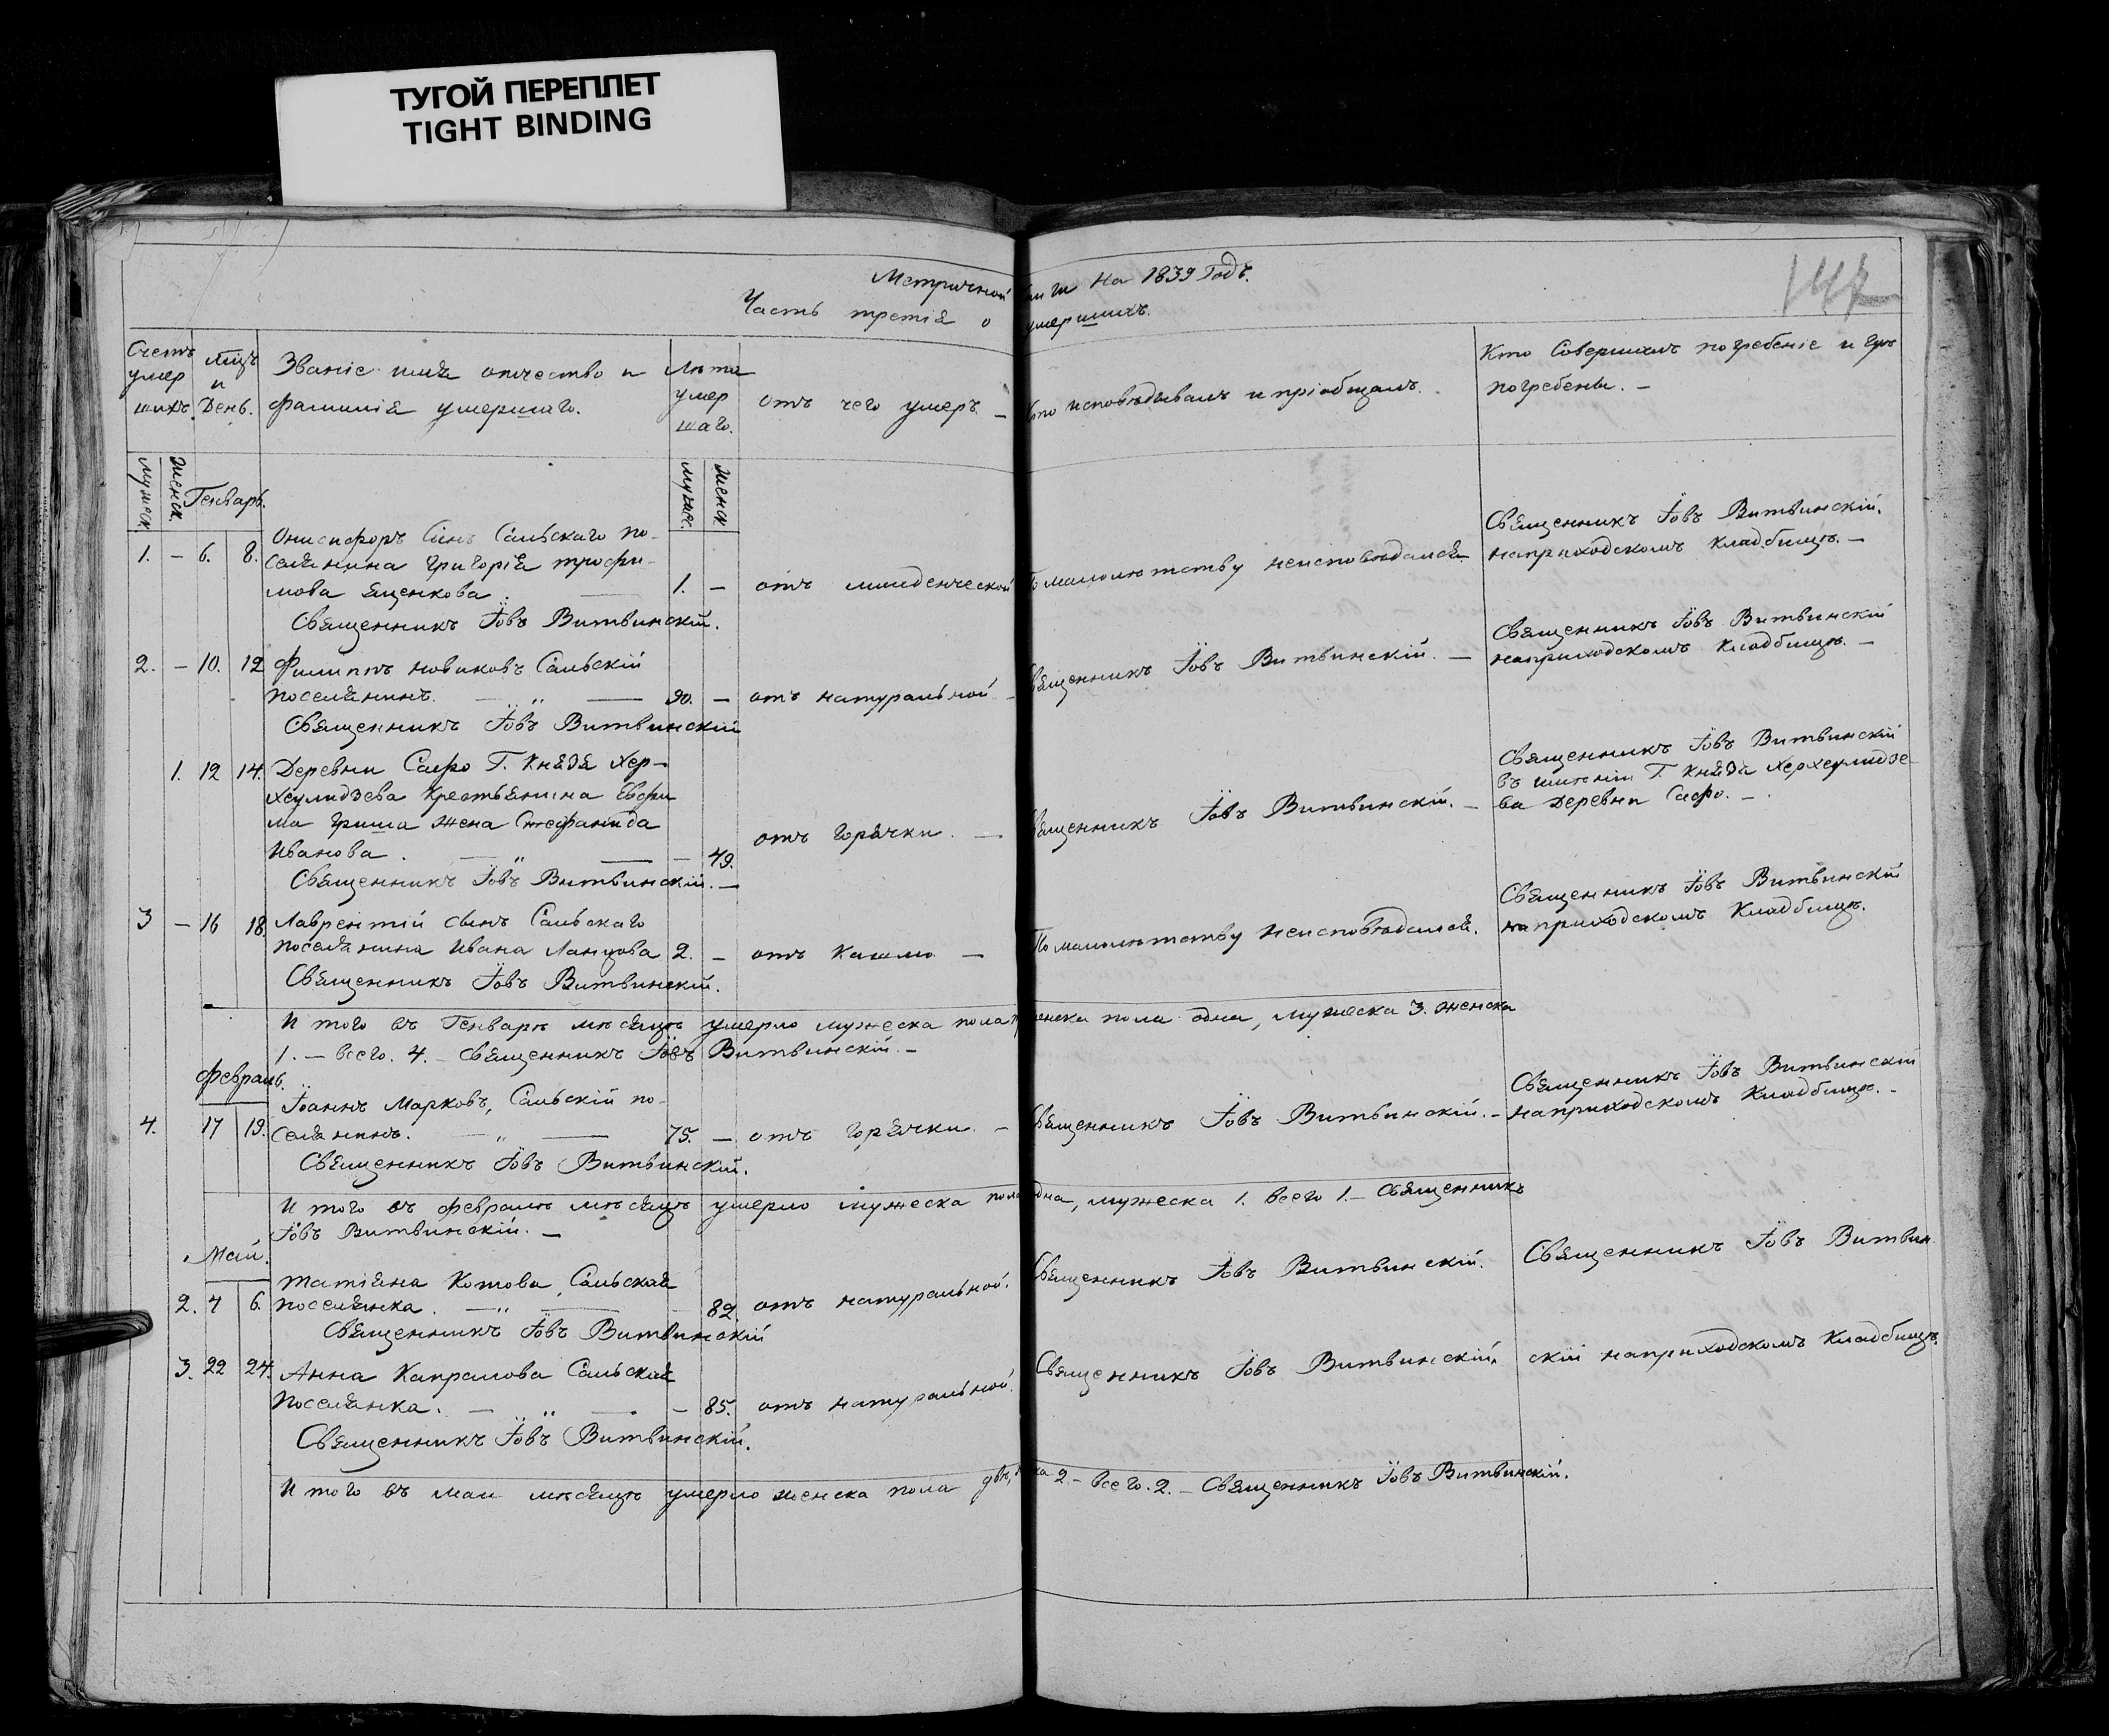 ТУГОЙ ПЕРЕПЛЕТ
TIGHT BINDING
Метричной книги на 1839 Годъ.
Часть третія о умершихъ.
142
Счетъ умер шихъ.
Мцъ и День.
Званіе имя отчество и фамилія умершаго.
Лѣта умер шаго.
Отъ чего умеръ. –
Кто исповѣдывалъ и пріобщалъ.
Кто Совершалъ погребеніе и гдѣ погребены. –
мужеск. женск.
Генварь.
мужес. женск.
Онисифоръ Сынъ Сальскаго по-
1. – 6. 8. селянина Григорія трофи-
мова Яценкова. 1. – отъ младенческой По малолѣтству неисповѣдался.
Священникъ Іовъ Витвинскій.
наприходскомъ кладбищѣ. –
Священникъ Іовъ Витвинскій.
2. – 10. 12 Филиппъ новиковъ Сальскій
поселянинъ. – „ – 90. – отъ натуральной – Священникъ Іовъ Витвинскій. –
Священникъ Іовъ Витвинскій
наприходскомъ Кладбищѣ. –
Священникъ Іовъ Витвинскій
1. 12 14. Деревни Сафо Г. Князя Хер-
хеулидзева Крестьянина Евфи
ма Гриша жена Стефанида
Иванова. – „ – – 49. отъ Горячки. – Священникъ Іовъ Витвинскій. –
Священникъ Іовъ Витвинскій
въ имѣніи Г. Князя Херхеулидзе-
ва Деревни Сафо. –
Священникъ Іовъ Витвинскій. –
3 – 16 18. Лаврентій сынъ Сальскаго
поселянина Ивана Ланцова 2. – отъ Кашлю – По малолѣтству неисповѣдался.
Священникъ Іовъ Витвинскій
наприходскомъ Кладбищѣ.
Священникъ Іовъ Витвинскій.
И того въ Генварѣ мѣсяцѣ умерло мужеска пола женска пола одна, мужеска 3. женска
1. – всего. 4. – Священникъ Іовъ Витвинскій. –
Февраль.
Іоаннъ Марковъ, Сальскій по-
4. 17 19. селянинъ. – „ – 75. – отъ горячки. – Священникъ Іовъ Витвинскій. –
Священникъ Іовъ Витвинскій
наприходскомъ Кладбищѣ. –
Священникъ Іовъ Витвинскій.
И того въ февралѣ мѣсяцѣ умерло мужеска пола одна, мужеска 1. всего 1. – Священникъ
Іовъ Витвинскій. –
Май.
Татіяна Котова, Сальская
2. 4 6. поселянка. – „ – – 82. отъ натуральной. Священникъ Іовъ Витвинскій. Священникъ Іовъ Витвин
Священникъ Іовъ Витвинскій
3. 22 24. Анна Капралова Сальская
поселянка. – „ – – 85. отъ натуральной. Священникъ Іовъ Витвинскій. скій наприходскомъ Кладбищѣ.
Священникъ Іовъ Витвинскій.
И того въ маи мѣсяцѣ умерло женска пола двѣ, 2 – всего. 2. – Священникъ Іовъ Витвинскій.